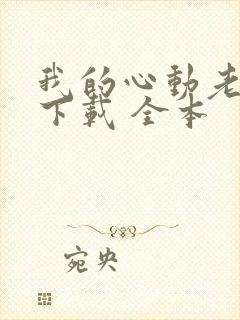 我的心動老
下載 全本
宛央